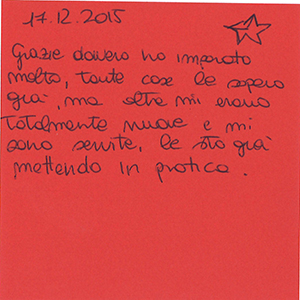 17.12.2015
Grazie davvero ho imparato
molto, tante cose le sapevo
già, ma altre mi erano
totalmente nuove e mi
sono servite, le sto già
mettendo in pratica.